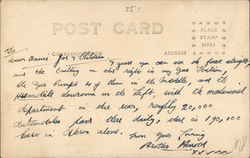 25-
POST CARD
PLACE
STAMP
HERE
CORRESPONDENCE
ADDRESS
Dear Annie Joe &
guess you can see the face alright,
and the building on the right is my Gas Station,
the Gas Pumps is of them in the middle, and the
Automobile showroom on the Left, with the mechanical
department in the rear, roughly 20,000
Automobiles pass here daily, there is 190,000
here in alone. from your Loving
Brother